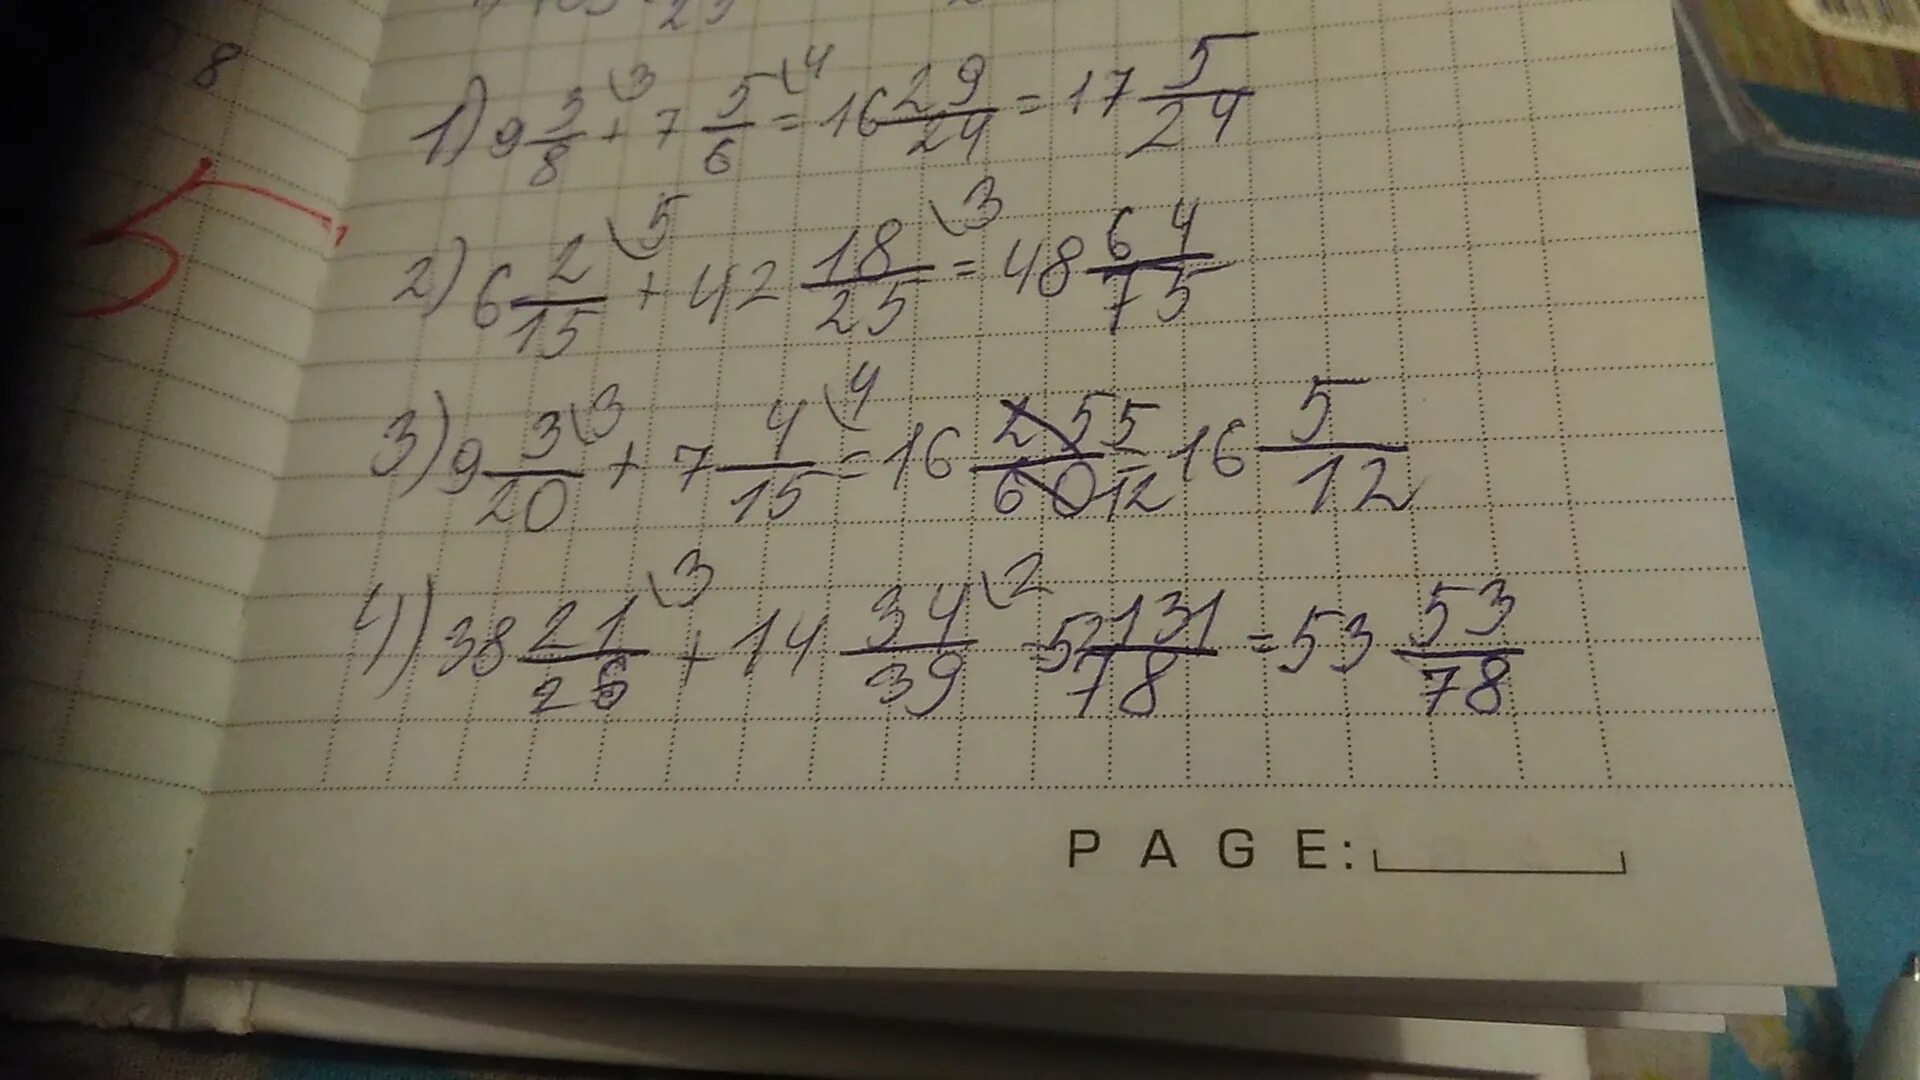 8
1) 9 3/8 \3 + 7 5/6 \4 = 16 29/24 = 17 5/24
5
2) 6 2/15 \5 + 42 18/25 \3 = 48 64/75
3) 9 3/20 \3 + 7 4/15 \4 = 16 25/60 5/12 = 16 5/12
4) 38 21/26 \3 + 14 34/39 \2 = 52 131/78 = 53 53/78
PAGE: